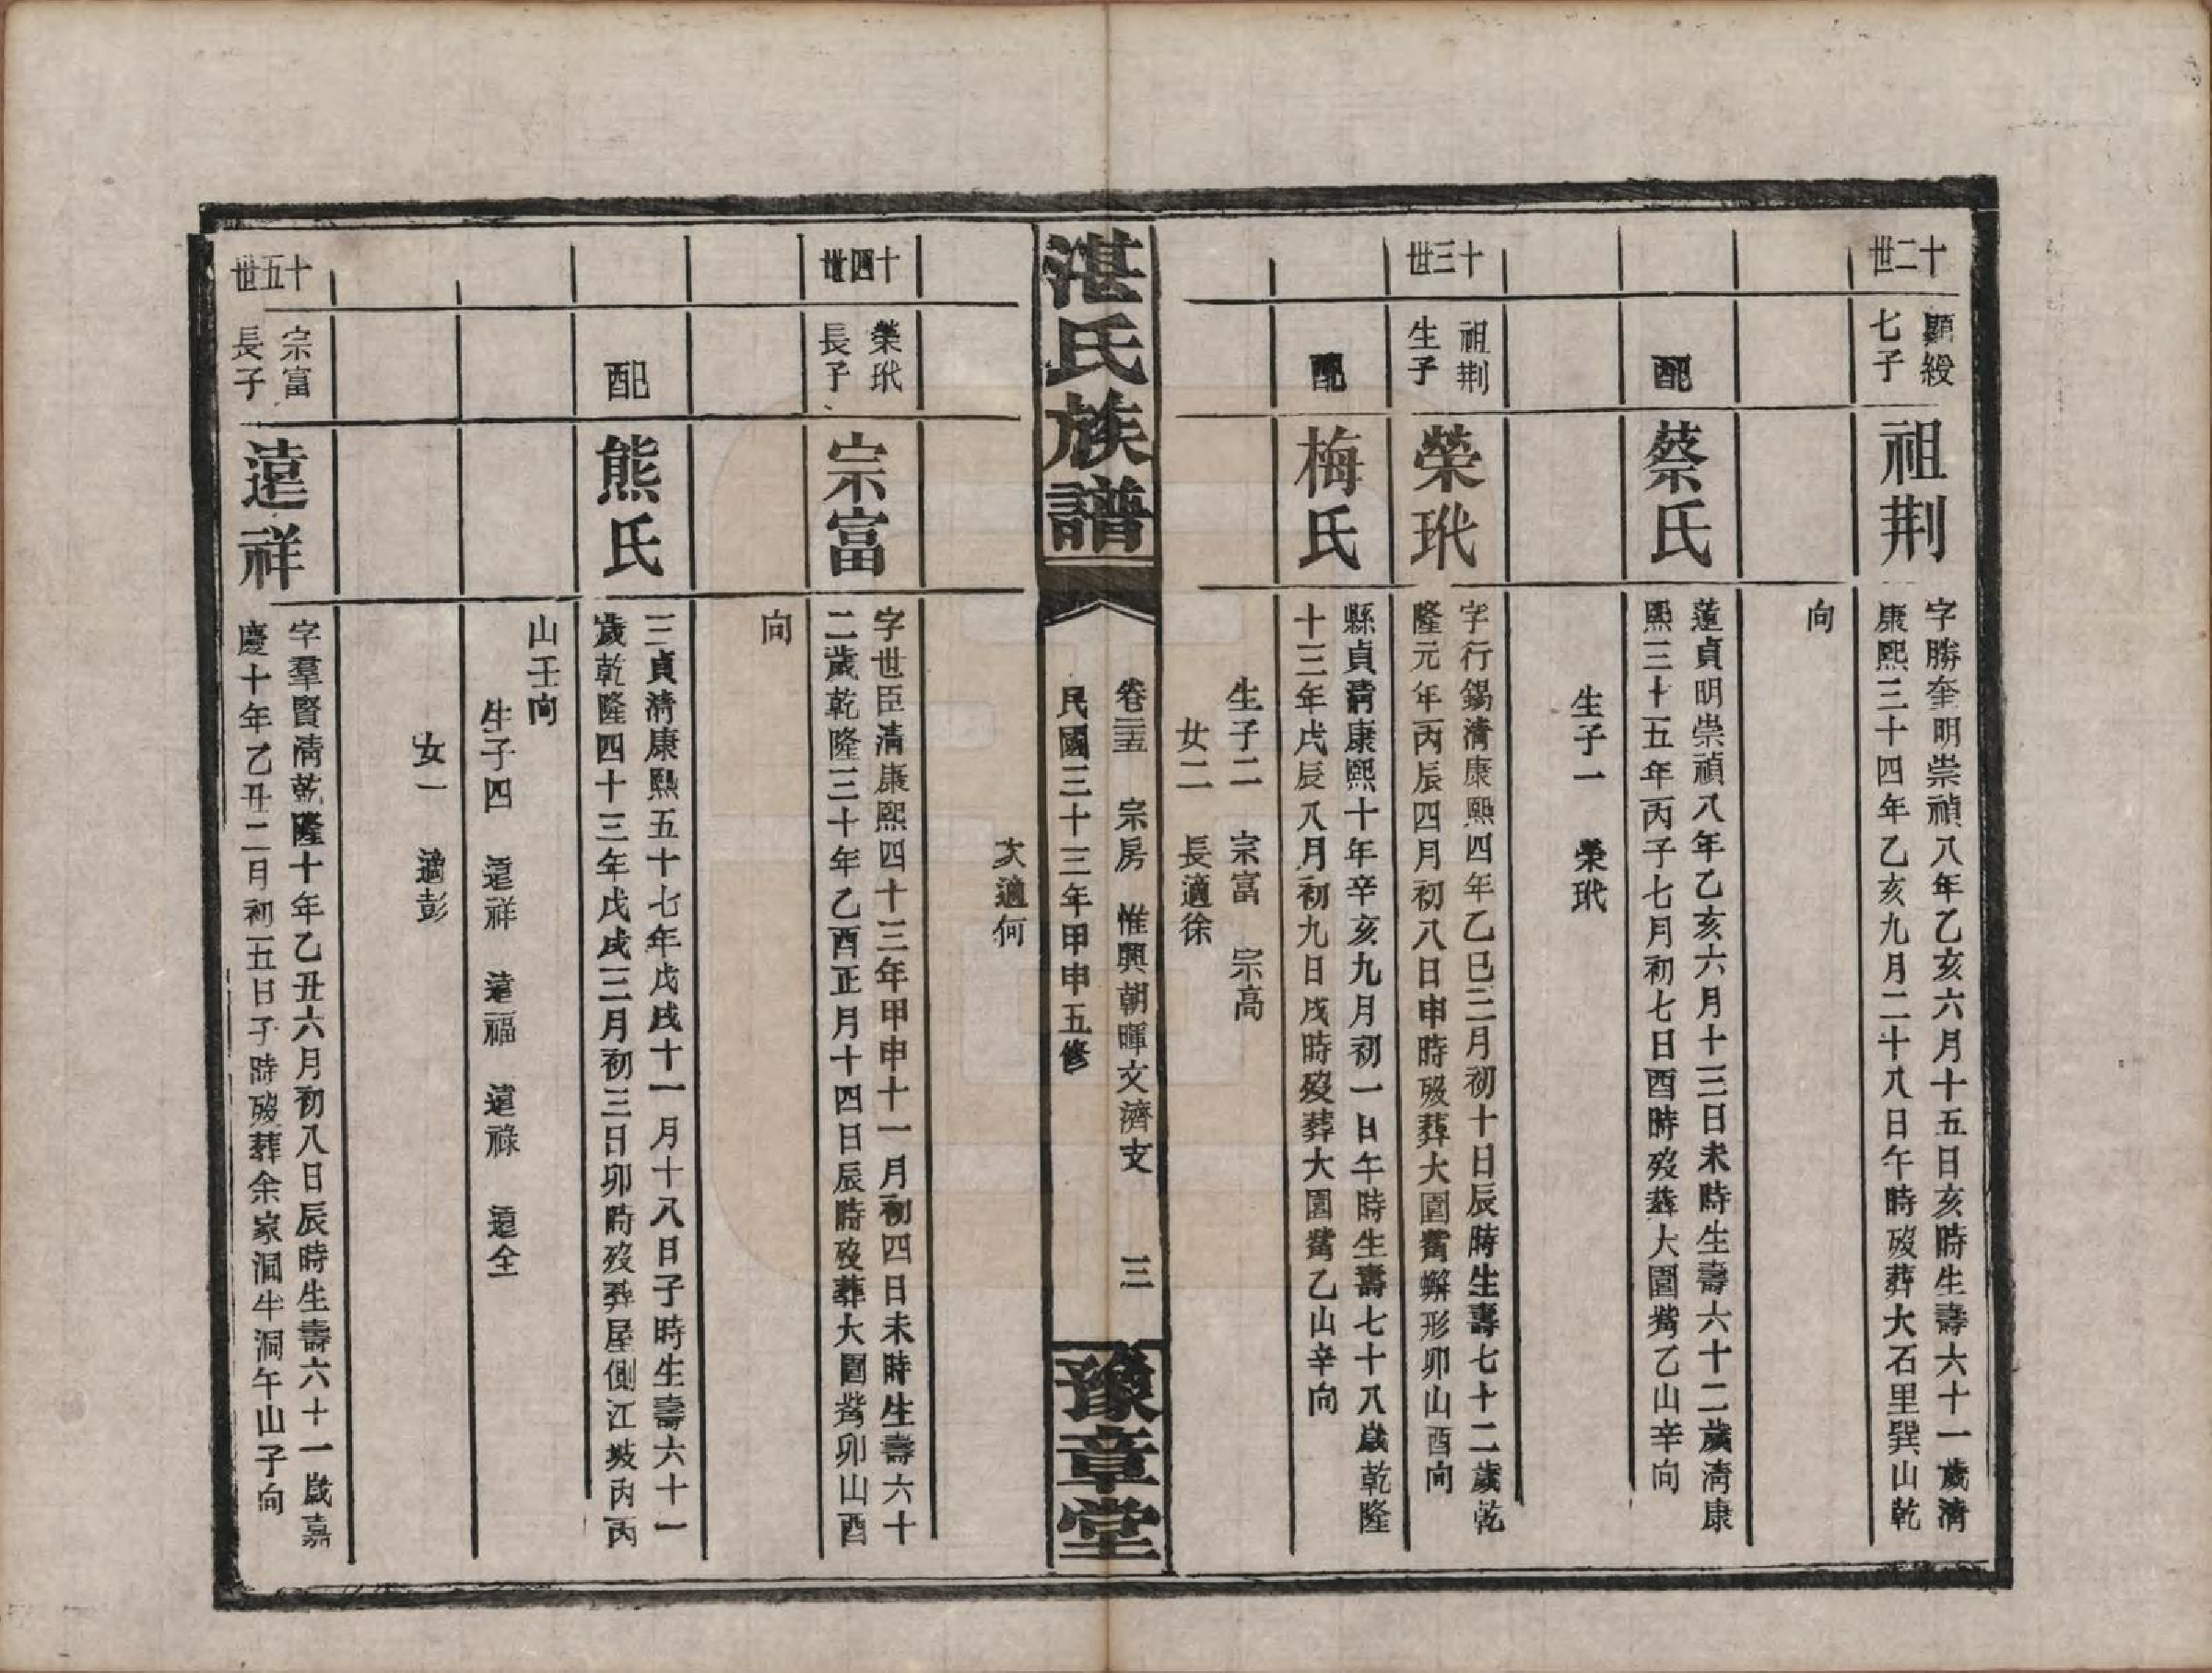 十二世
顯綬
七子
祖荆
字勝奎明崇禎八年乙亥六月十五日亥時生壽六十一歲清
康熙三十四年乙亥九月二十八日午時歿葬大石里巽山乾
向
配
蔡氏
蓮貞明崇禎八年乙亥六月十三日未時生壽六十二歲清康
熙三十五年丙子七月初七日酉時歿葬大園嘴乙山辛向
生子一 榮玳
十三世
祖荆
生子
榮玳
字行錫清康熙四年乙巳三月初十日辰時生壽七十二歲乾
隆元年丙辰四月初八日申時歿葬大園嘴蠏形卯山酉向
配
梅氏
縣貞清康熙十年辛亥九月初一日午時生壽七十八歲乾隆
十三年戊辰八月初九日戌時歿葬大園嘴乙山辛向
生子二 宗富 宗高
女二 長適徐
湛氏族譜
卷三五 宗房 惟興朝暉文濟支 三
民國三十三年甲申五修
豫章堂
次適何
十四世
榮玳
長子
宗富
字世臣清康熙四十三年甲申十一月初四日未時生壽六十
二歲乾隆三十年乙酉正月十四日辰時歿葬大園嘴卯山酉
向
配
熊氏
三貞清康熙五十七年戊戌十一月十八日子時生壽六十一
歲乾隆四十三年戊戌三月初三日卯時歿葬屋側江坡丙丙
山壬向
生子四 遠祥 遠福 遠祿 遠全
女一 適彭
十五世
宗富
長子
遠祥
字羣賢清乾隆十年乙丑六月初八日辰時生壽六十一歲嘉
慶十年乙丑二月初五日子時歿葬余家洞牛洞午山子向